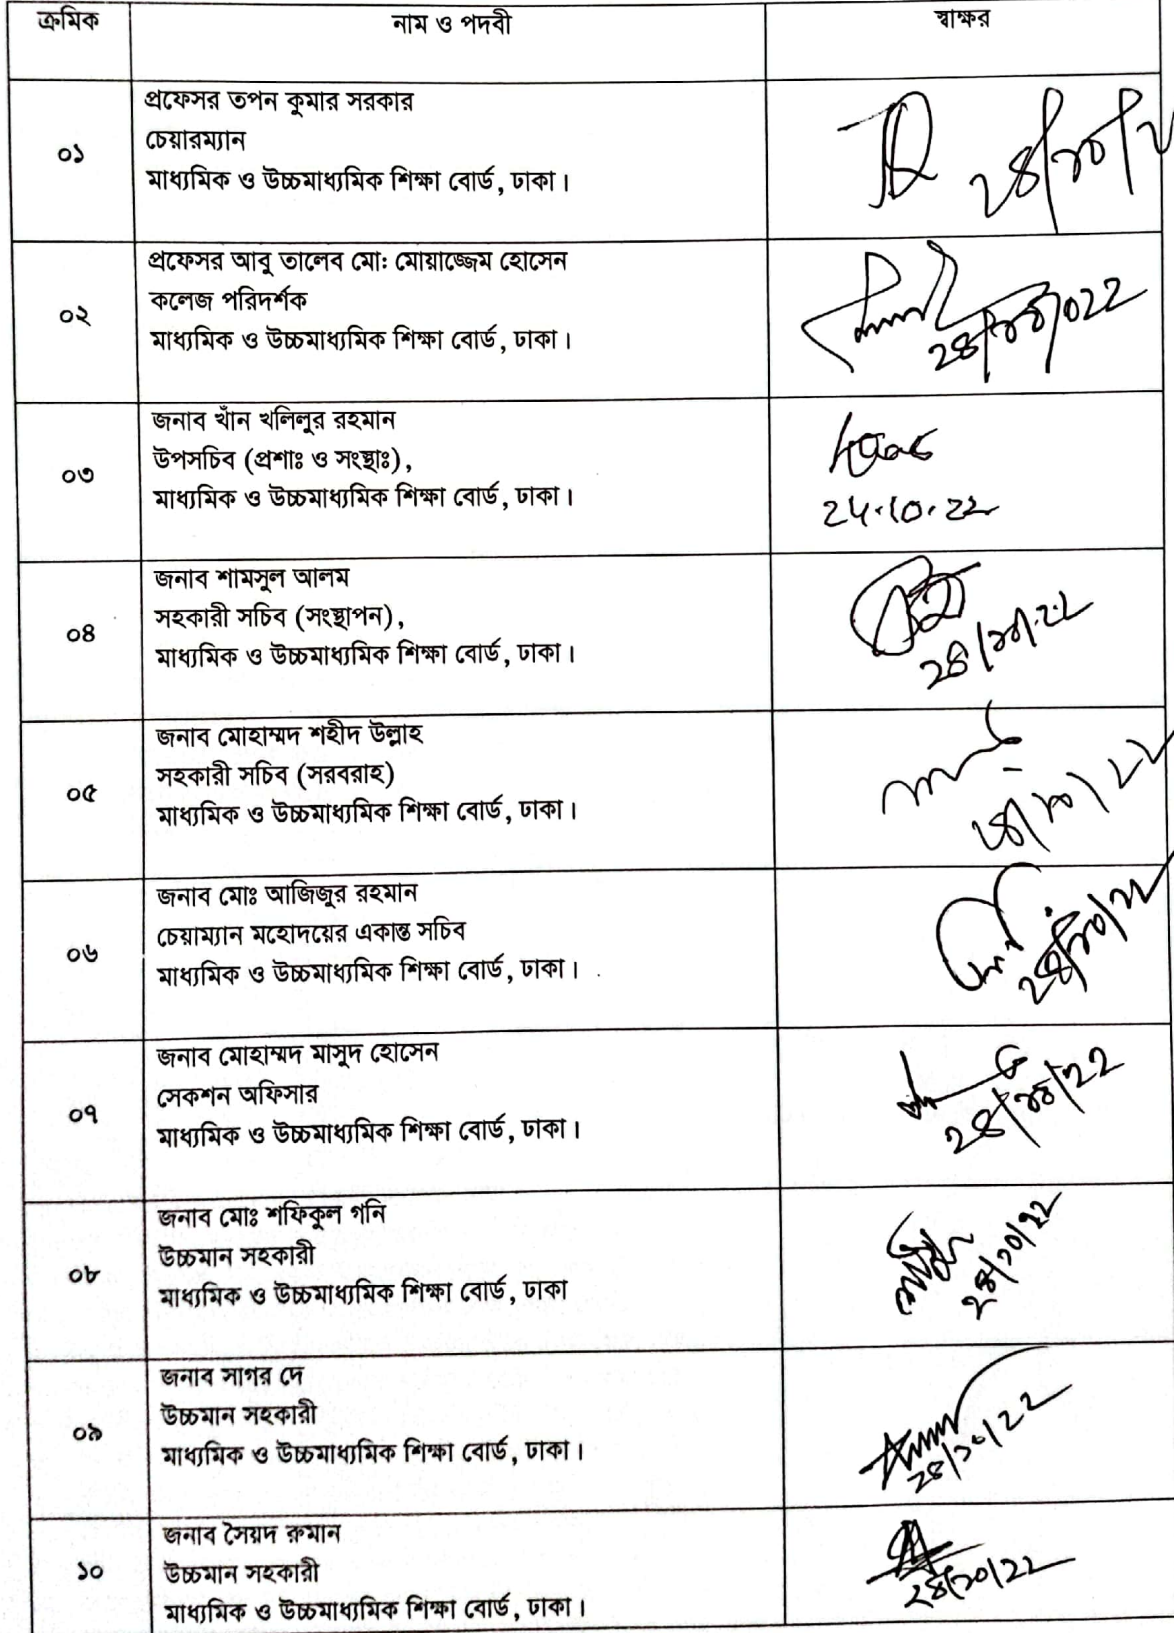 ক্রমিক
নাম ও পদবী
স্বাক্ষর
০১
প্রফেসর তপন কুমার সরকার
চেয়ারম্যান
মাধ্যমিক ও উচ্চমাধ্যমিক শিক্ষা বোর্ড, ঢাকা।
২৪/১০/২
০২
প্রফেসর আবু তালেব মো: মোয়াজ্জেম হোসেন
কলেজ পরিদর্শক
মাধ্যমিক ও উচ্চমাধ্যমিক শিক্ষা বোর্ড, ঢাকা।
০৩
জনাব খাঁন খলিলুর রহমান
উপসচিব (প্রশাঃ ও সংস্থাঃ),
মাধ্যমিক ও উচ্চমাধ্যমিক শিক্ষা বোর্ড, ঢাকা।
24.10.22
০৪
জনাব শামসুল আলম
সহকারী সচিব (সংস্থাপন),
মাধ্যমিক ও উচ্চমাধ্যমিক শিক্ষা বোর্ড, ঢাকা।
২৪/১০/২২
০৫
জনাব মোহাম্মদ শহীদ উল্লাহ
সহকারী সচিব (সরবরাহ)
মাধ্যমিক ও উচ্চমাধ্যমিক শিক্ষা বোর্ড, ঢাকা।
২৪/১০/২২
০৬
জনাব মোঃ আজিজুর রহমান
চেয়াম্যান মহোদয়ের একান্ত সচিব
মাধ্যমিক ও উচ্চমাধ্যমিক শিক্ষা বোর্ড, ঢাকা।
২৪/১০/২২
০৭
জনাব মোহাম্মদ মাসুদ হোসেন
সেকশন অফিসার
মাধ্যমিক ও উচ্চমাধ্যমিক শিক্ষা বোর্ড, ঢাকা।
২৪/১০/২২
০৮
জনাব মোঃ শফিকুল গনি
উচ্চমান সহকারী
মাধ্যমিক ও উচ্চমাধ্যমিক শিক্ষা বোর্ড, ঢাকা
২৪/১০/২২
০৯
জনাব সাগর দে
উচ্চমান সহকারী
মাধ্যমিক ও উচ্চমাধ্যমিক শিক্ষা বোর্ড, ঢাকা।
২৪/১০/২২
১০
জনাব সৈয়দ রুমান
উচ্চমান সহকারী
মাধ্যমিক ও উচ্চমাধ্যমিক শিক্ষা বোর্ড, ঢাকা।
২৪/১০/২২